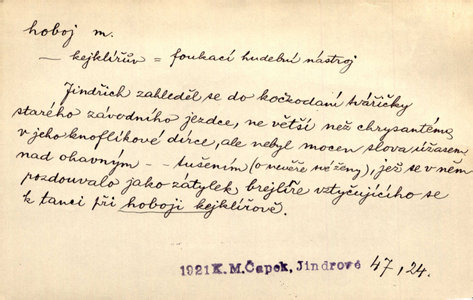 hoboj m.
— kejklířův = foukací hudební nástroj
Jindřich zahleděl se do kočkodaní tvářičky
starého závodního jezdce, ne větší než chrysantéma
v jeho knoflíkové dírce, ale nebyl mocen slova úžasem
nad ohavným - tušením (o nevěře ženy), jež se v něm
pozdouvalo jako zátylek brejlíře vztyčujícího se
k tanci při hoboji kejklířově.
1921 K. M. Čapek, Jindrové 47, 24.